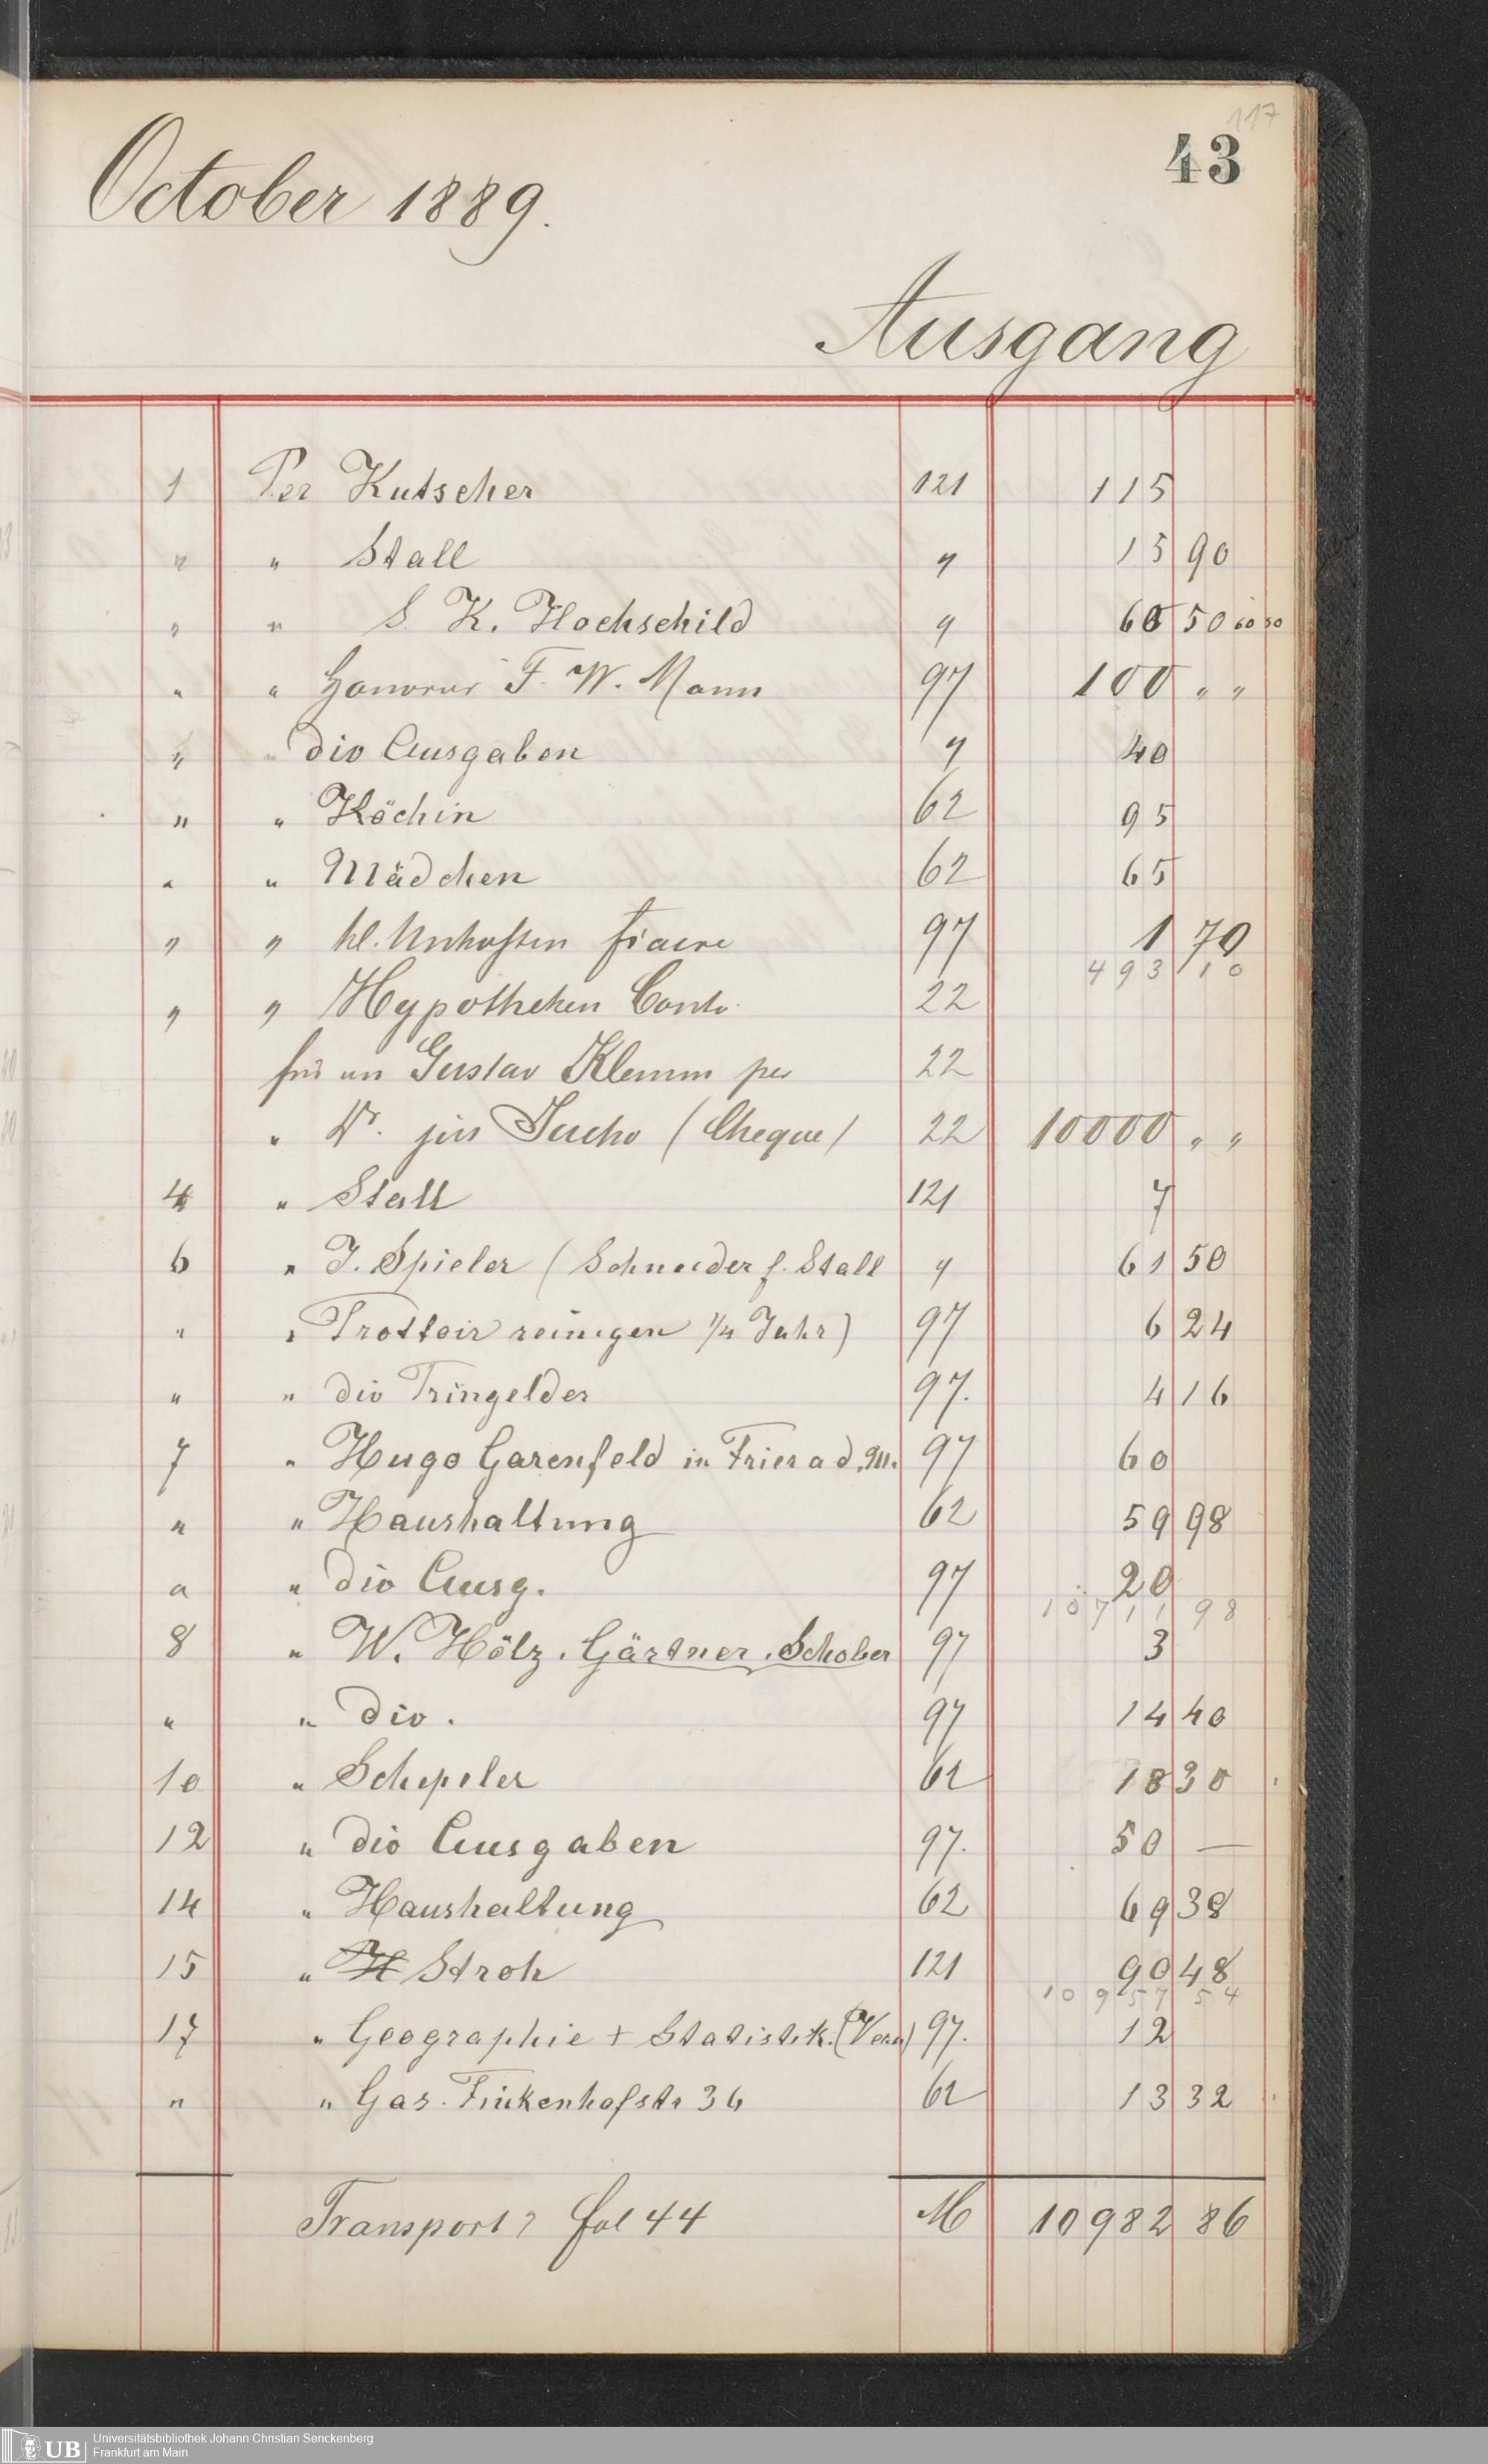 117
43
October 1889.
Ausgang
1 Per Kutscher 121 115
" " Stall " 15 90
" " S. K. Hochschild " 60 50 60 50
" " Honorar F. W. Mann 97 100 " "
" " div Ausgaben " 40
" " Köchin 62 95
" " Mädchen 62 65
" " kl. Unkosten fiacre 97 1 70
493 10
" " Hypotheken Conto 22
für an Gustav Klemm per 22
" Dr. jur Sucho (Cheque) 22 10000 " "
4 " Stall 121 7
6 " J. Spieler (Schneider f. Stall " 61 50
" " Trottoir reinigen 1/4 Jahr) 97 6 24
" " div Tringelder 97. 4 16
7 " Hugo Garenfeld in Trier a d. M. 97 60
" " Haushaltung 62 59 98
" " div Ausg. 97 20
10711 98
8 " W. Hölz. Gärtner. Schober 97 3
" " div. 97 14 40
10 " Schepeler 62 18 30
12 " div Ausgaben 97. 50 —
14 " Haushaltung 62 69 38
15 " H Stroh 121 90 48
10957 54
17 " Geographie + Statistik. (Verein) 97. 12
" " Gas. Finkenhofstr 36 62 13 32
Transport ? fol 44 M 10982 86
UB
Universitätsbibliothek Johann Christian Senckenberg
Frankfurt am Main